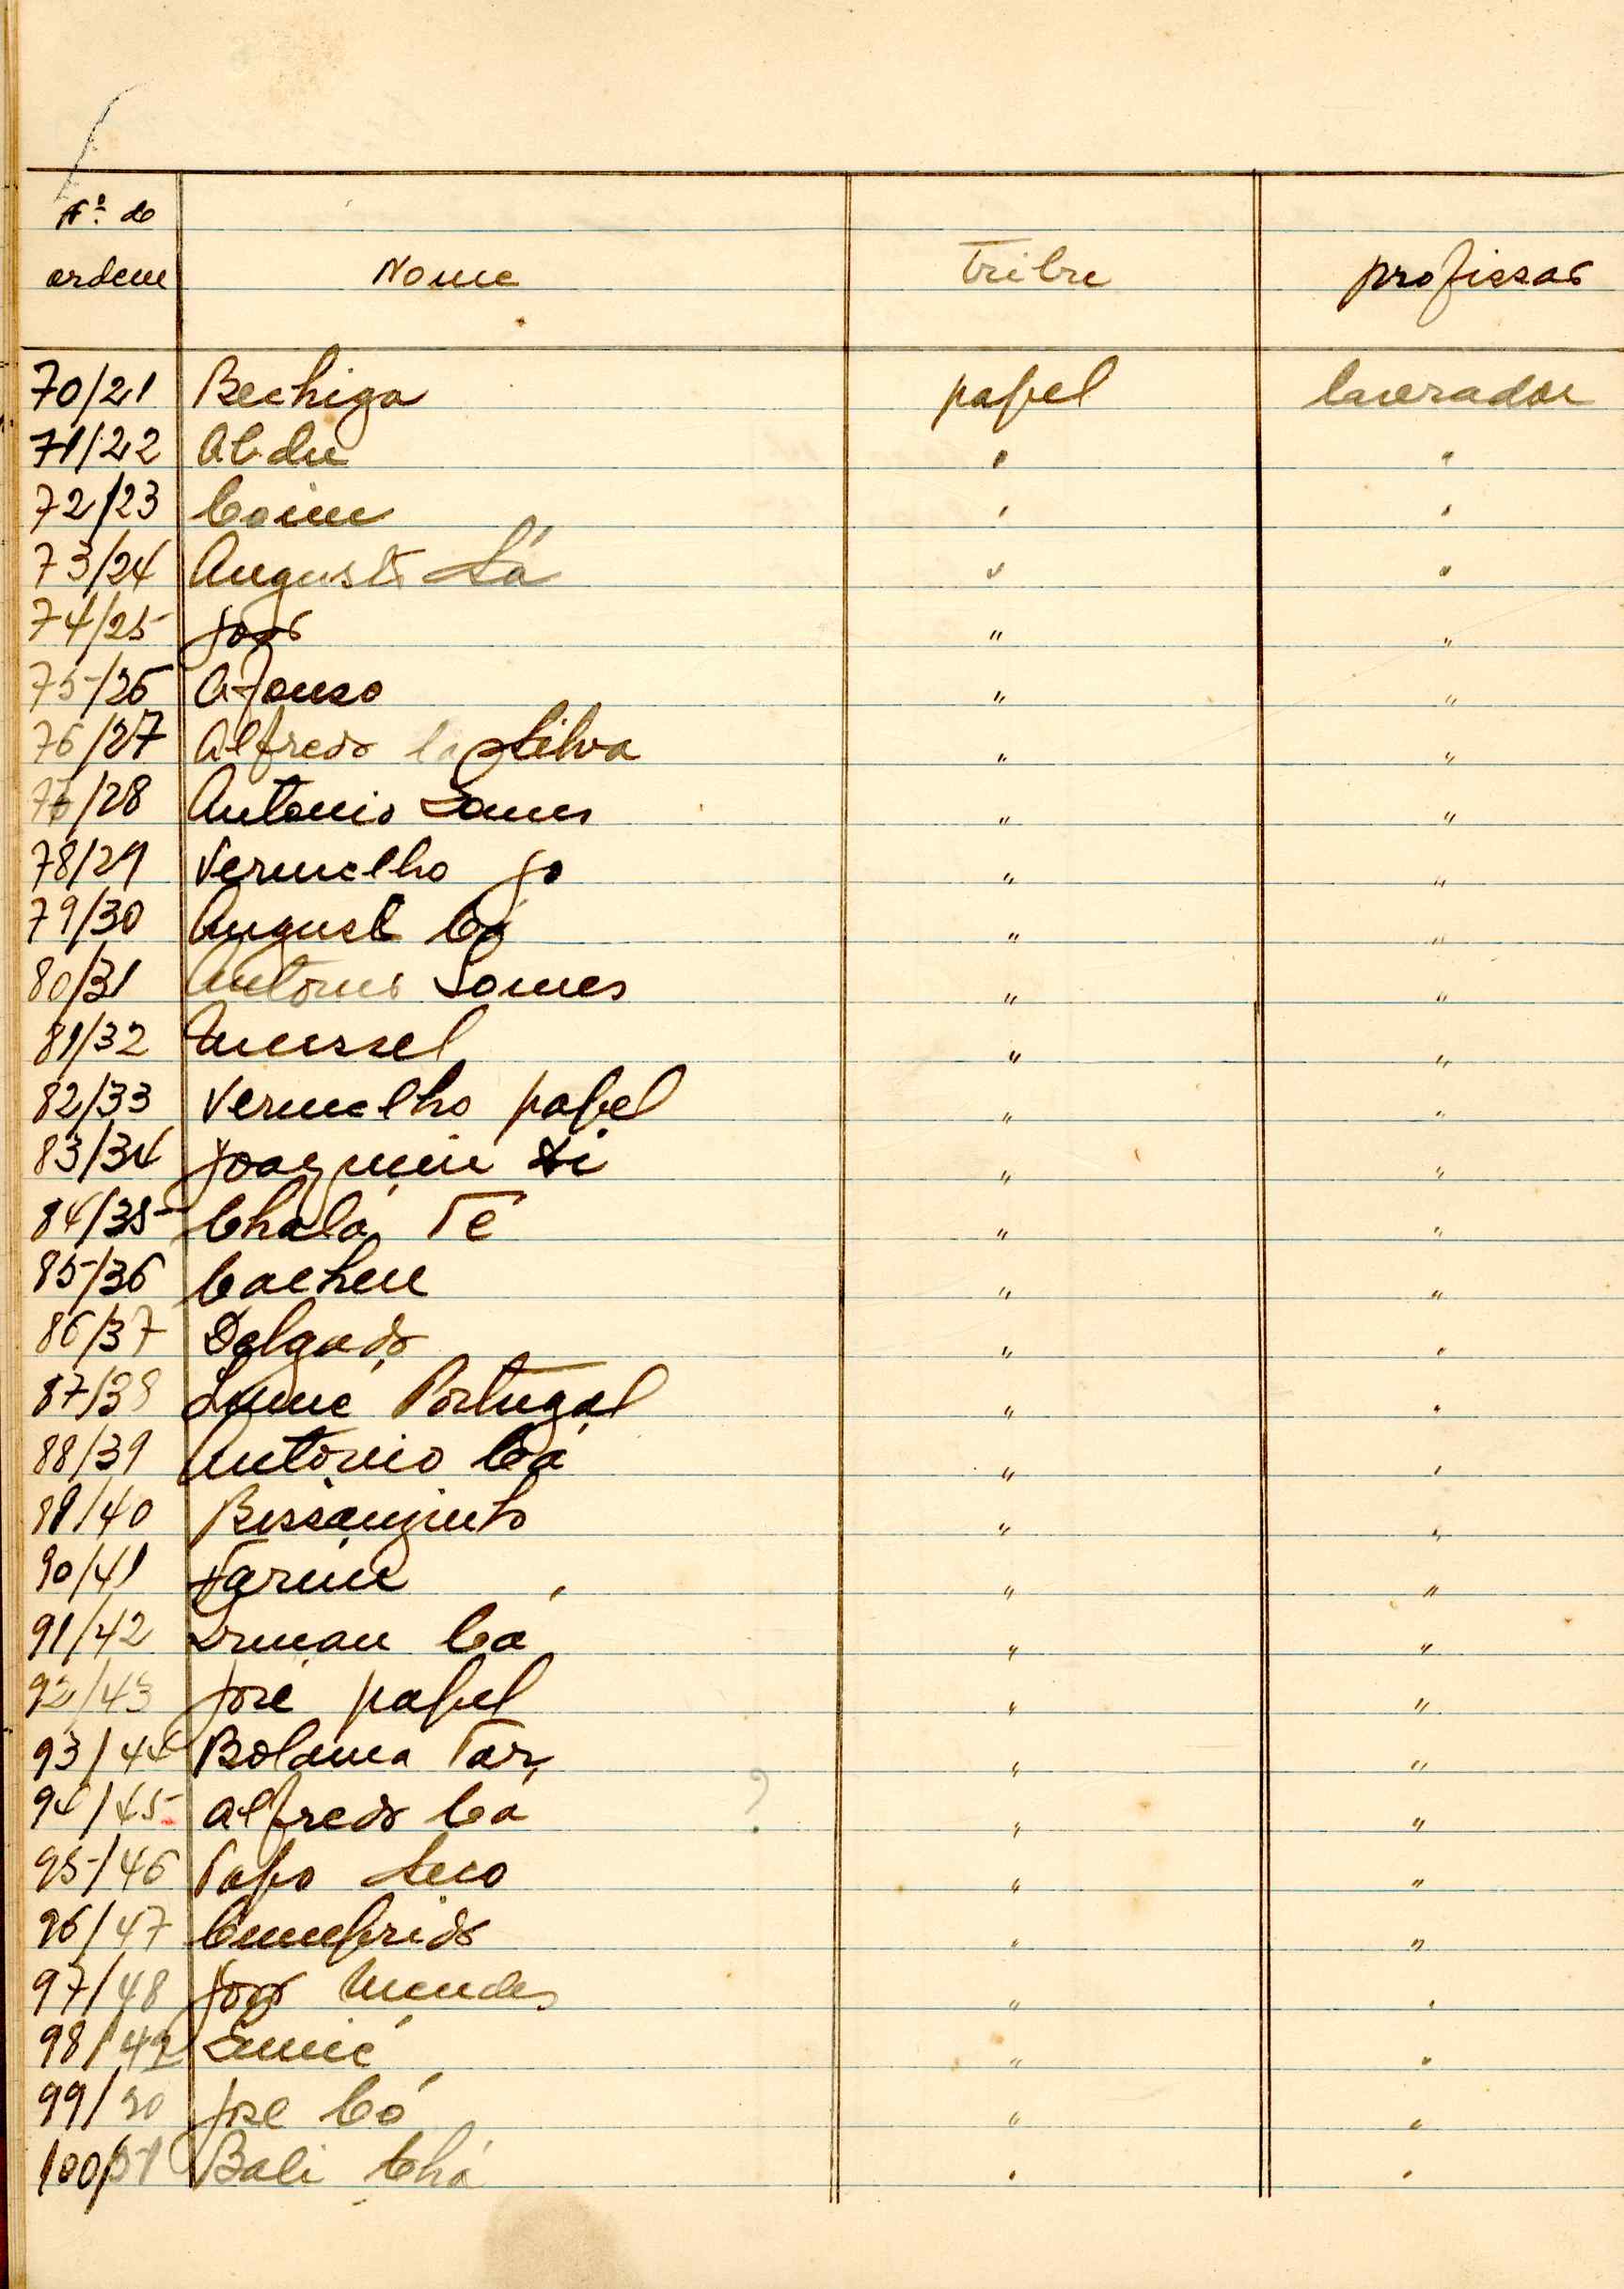 Nº de ordem Nome Tribu profissão
70/21 Bechiga papel lavrador
71/22 Abdu " "
72/23 Coim " "
73/24 Augusto Sá " "
74/25 João " "
75/26 Afonso " "
76/27 Alfredo da Silva " "
77/28 Antonio Gomes " "
78/29 Vermelho Jo " "
79/30 Augusto Cá " "
80/31 Antonio Gomes " "
81/32 " "
82/33 Vermelho papel " "
83/34 Joaquim Di " "
84/35 Chalá Té " "
85/36 Cacheu " "
86/37 Delgado " "
87/38 Portugal " "
88/39 Antonio Cá " "
89/40 " "
90/41 Farim " "
91/42 Cá " "
92/43 José papel " "
93/44 Bolama Tar " "
94/45 Alfredo Cá ? " "
95/46 Papo Seco " "
96/47 Cumprido " "
97/48 João Mendes " "
98/49 " "
99/50 José Có " "
100/51 Bali Chá " "